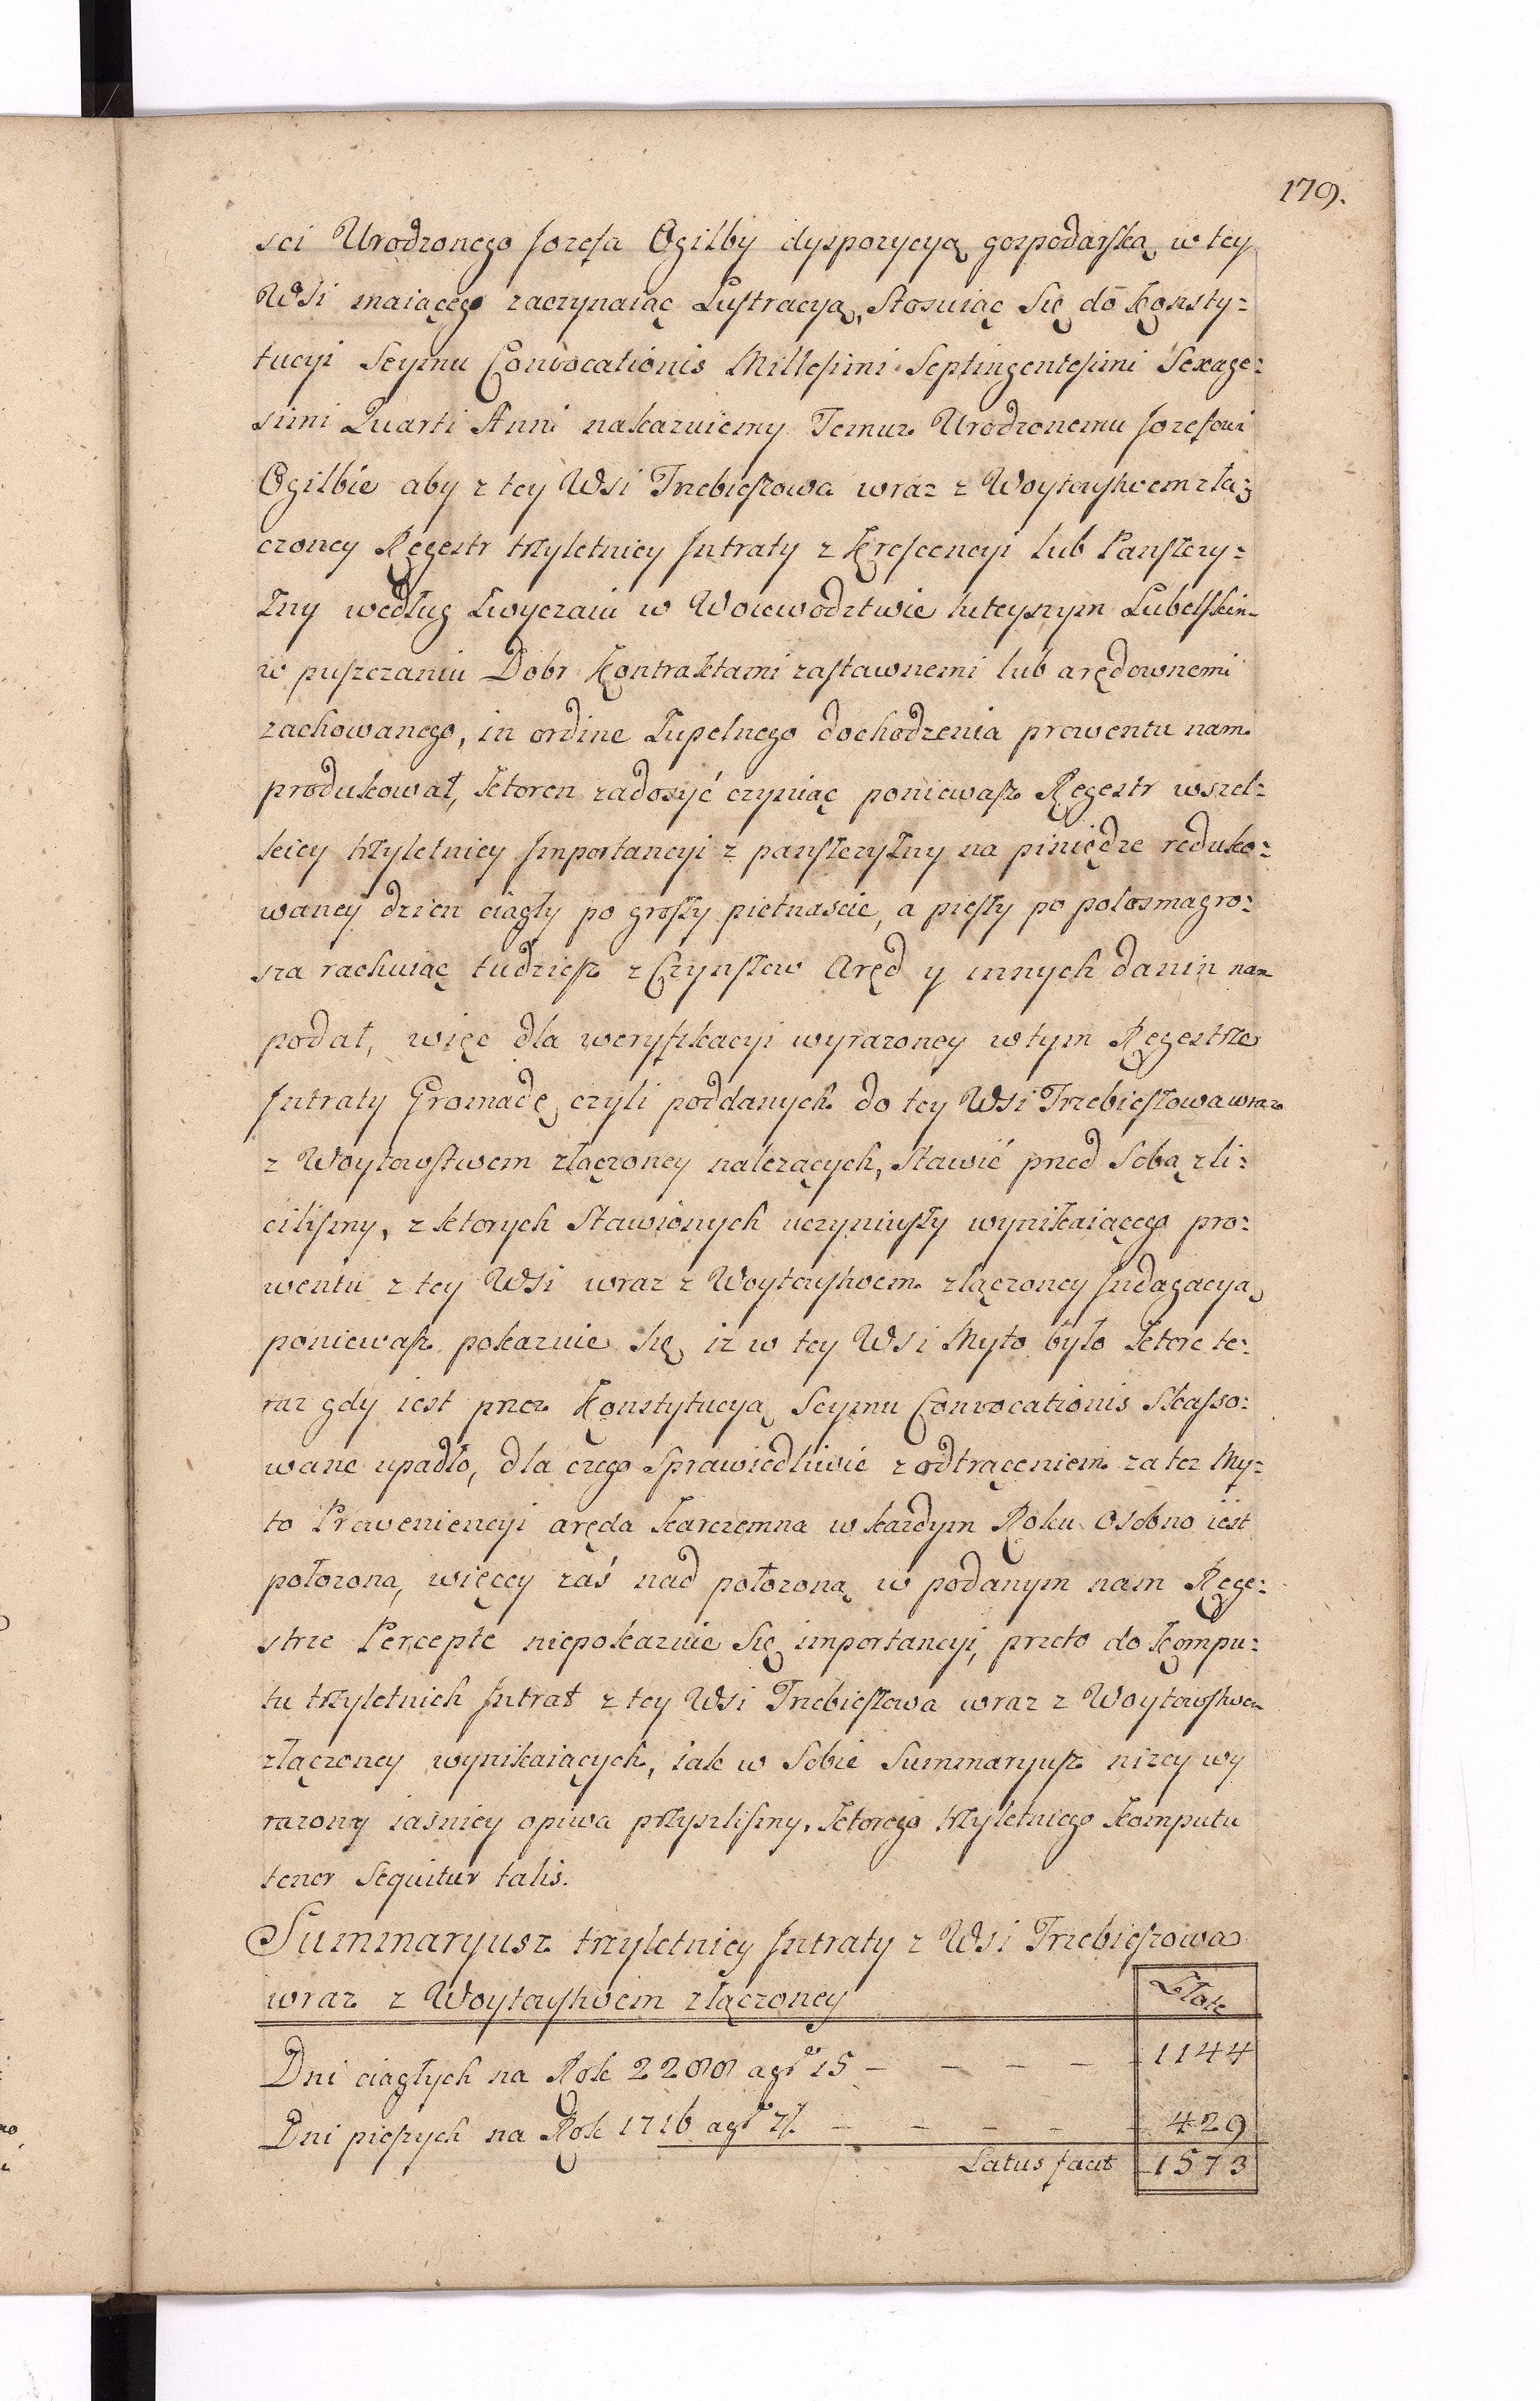 179.
sci Urodzonego Jozefa Ogilby dyspozycyą gospodarską w tey
Wsi maiącego zaczynaiąc Lustracyą, Stosuiąc Się do Konsty=
tucyi Seymu Convocationis Millesimi Septingentesimi Sexage=
simi Quarti Anni nakazuiemy Temuz Urodzonemu Jozefowi
Ogilbie aby z tey Wsi Trzebieszowa wraz z Woytowstwem złą=
czoney Regestr trzyletniey Intraty z Krescencyi lub Panszczy=
zny według Zwyczaiu w Woiewodztwie tuteyszym Lubelskim
w puszczaniu Dobr Kontraktami zastawnemi lub arędownemi
zachowanego, in ordine Zupełnego dochodzenia prowentu nam
produkował, ktoren zadosyć czyniąc poniewasz Regestr wszel=
kiey trzyletniey Importancyi z panszczyzny na piniędze reduko=
waney dzien ciągły po groszy pietnascie, a pieszy po połosmagro=
sza rachuiąc tudziesz z Czynszow Aręd y innych danin nam
podał, więc dla weryfikacyi wyrazoney w tym Regestrze
Intraty Gromadę czyli poddanych do tey Wsi Trzebieszowa wraz
z Woytowstwem złączoney nalezących, Stawić przed Sobą zli=
ciliszmy, z ktorych Stawionych uczyniwszy wynikaiącego pro=
wentu z tey Wsi wraz z Woytowstwem złączoney Indagacyą
poniewasz pokazuie Się iz w tey Wsi Myto było ktore te=
raz gdy iest przez Konstytucyą Seymu Convocationis Skasso=
wane upadło, dla czego Sprawiedliwie z odtrąceniem za tez My=
to Proweniencyi aręda karczemna w kazdym Roku Osobno iest
połozona, więcey zaś nad połozoną w podanym nam Rege=
strze Percepte niepokazuie Się importancyi, przeto do Kompu=
tu trzyletnich Intrat z tey Wsi Trzebieszowa wraz z Woytowstwem
złączoney wynikaiących, iak w Sobie Summaryusz nizey wy
razony iasniey opiwa przyszlismy, ktorego trzyletniego Komputu
tenor Sequitur talis.
Summaryusz trzyletniey Intraty z Wsi Trzebieszowa
wraz z Woytowstwem złączoney
Złote
Dni ciągłych na Rok 2288 a gr 15 – – – – – 1144
Dni pieszych na Rok 1716 a gr 7½ – – – – – 429
Latus facit 1573